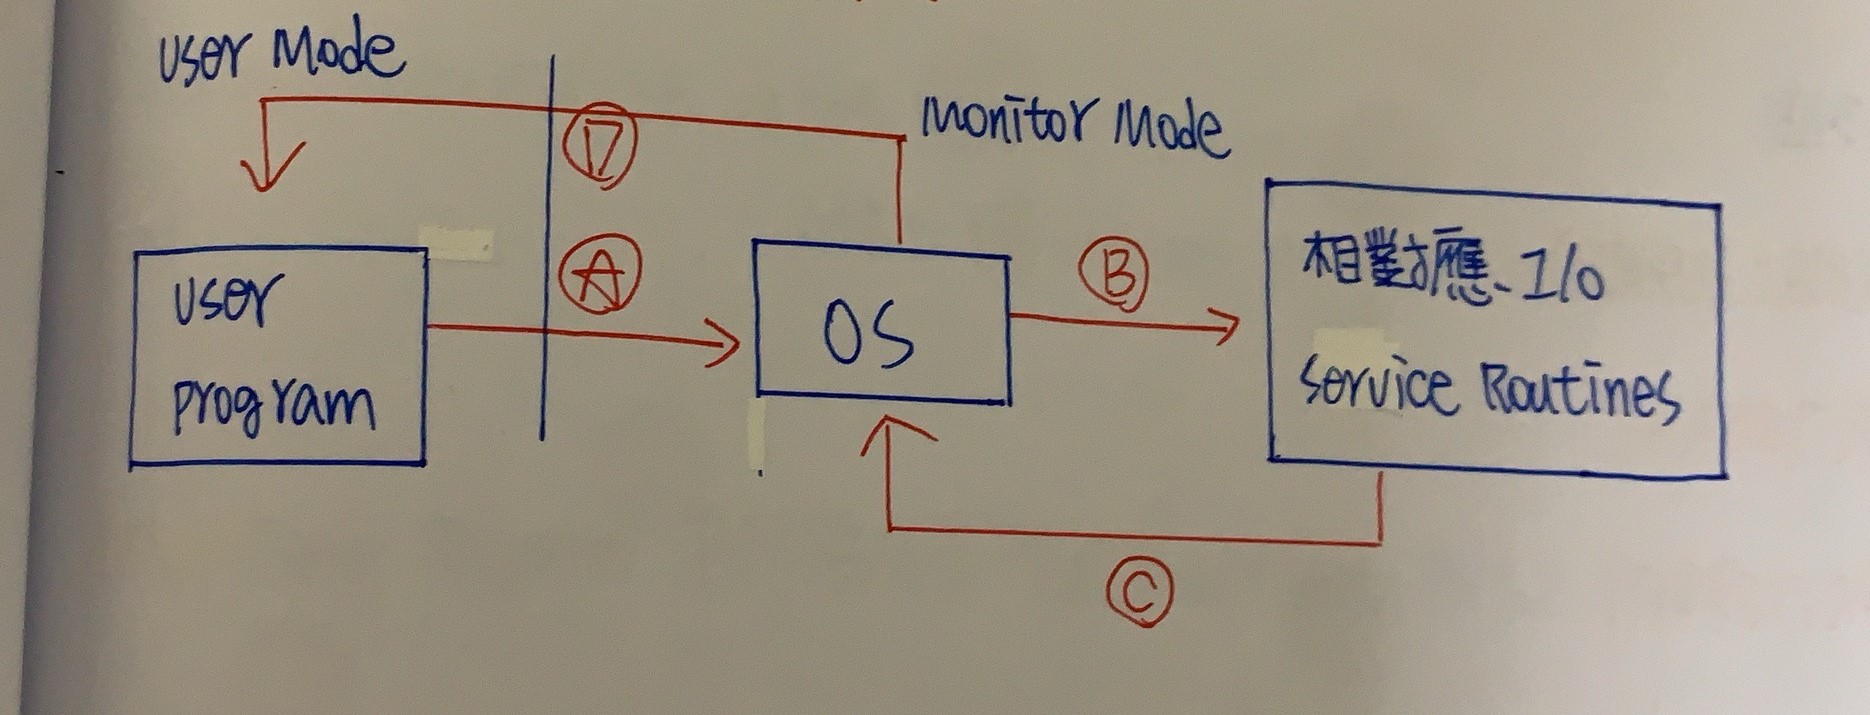 User Mode
Monitor Mode
D
A
B
user
program
OS
相對應 I/O
Service Routines
C